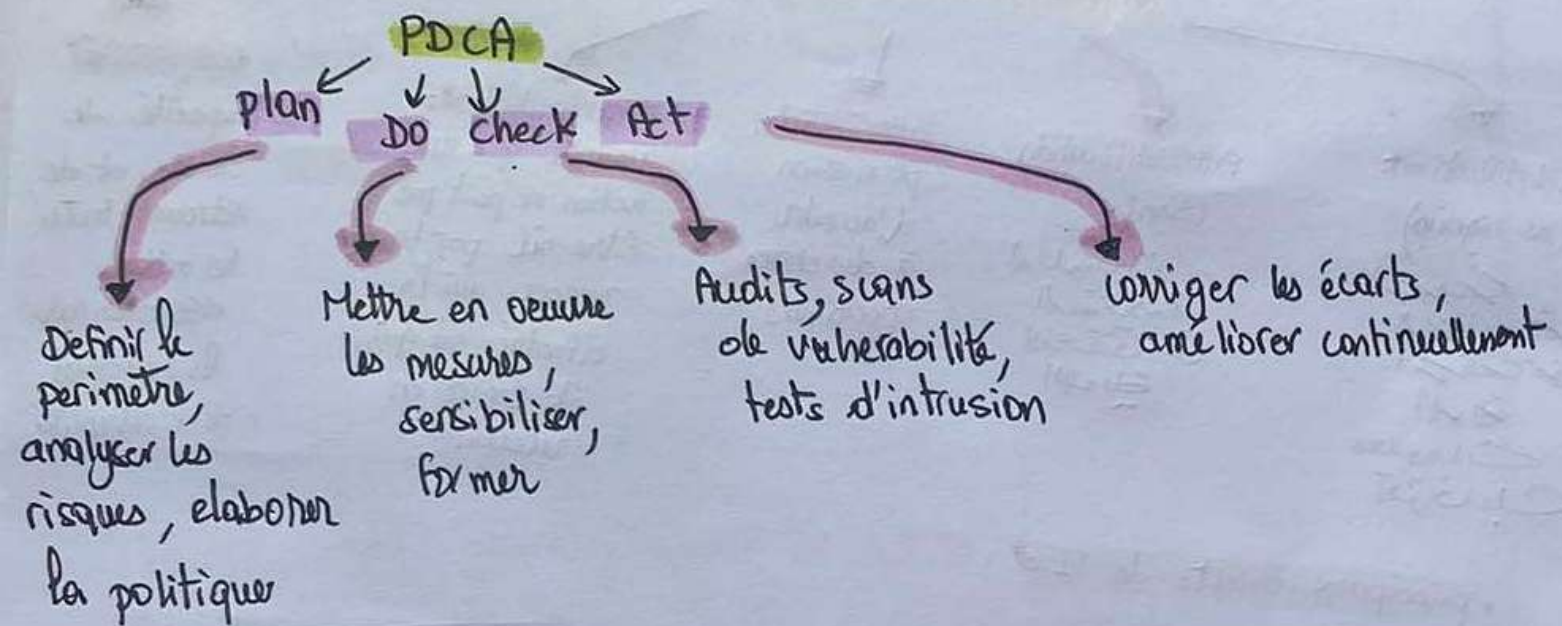 PDCA
plan
DO
check
Act
Definir le
perimetre,
analyser les
risques, elaborer
la politique
Mettre en oeuvre
les mesures,
sensibiliser,
former
Audits, scans
de vulnerabilité,
tests d'intrusion
corriger les écarts,
améliorer continuellement